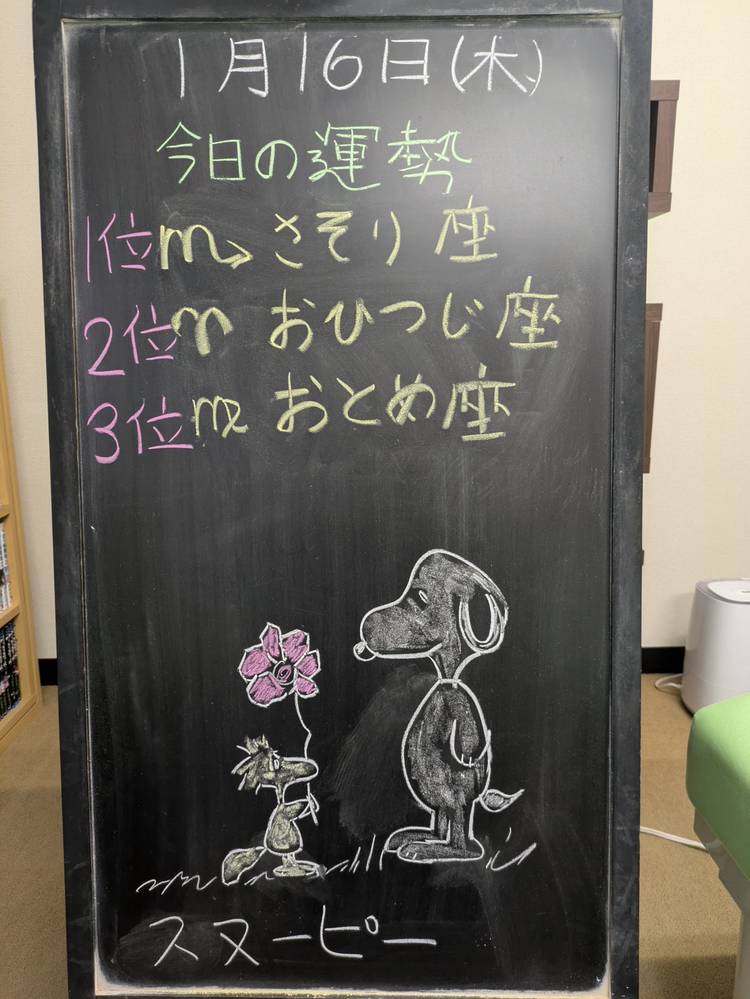 1月16日(木)
今日の運勢
1位♏さそり座
2位♈おひつじ座
3位♍おとめ座
スヌーピー